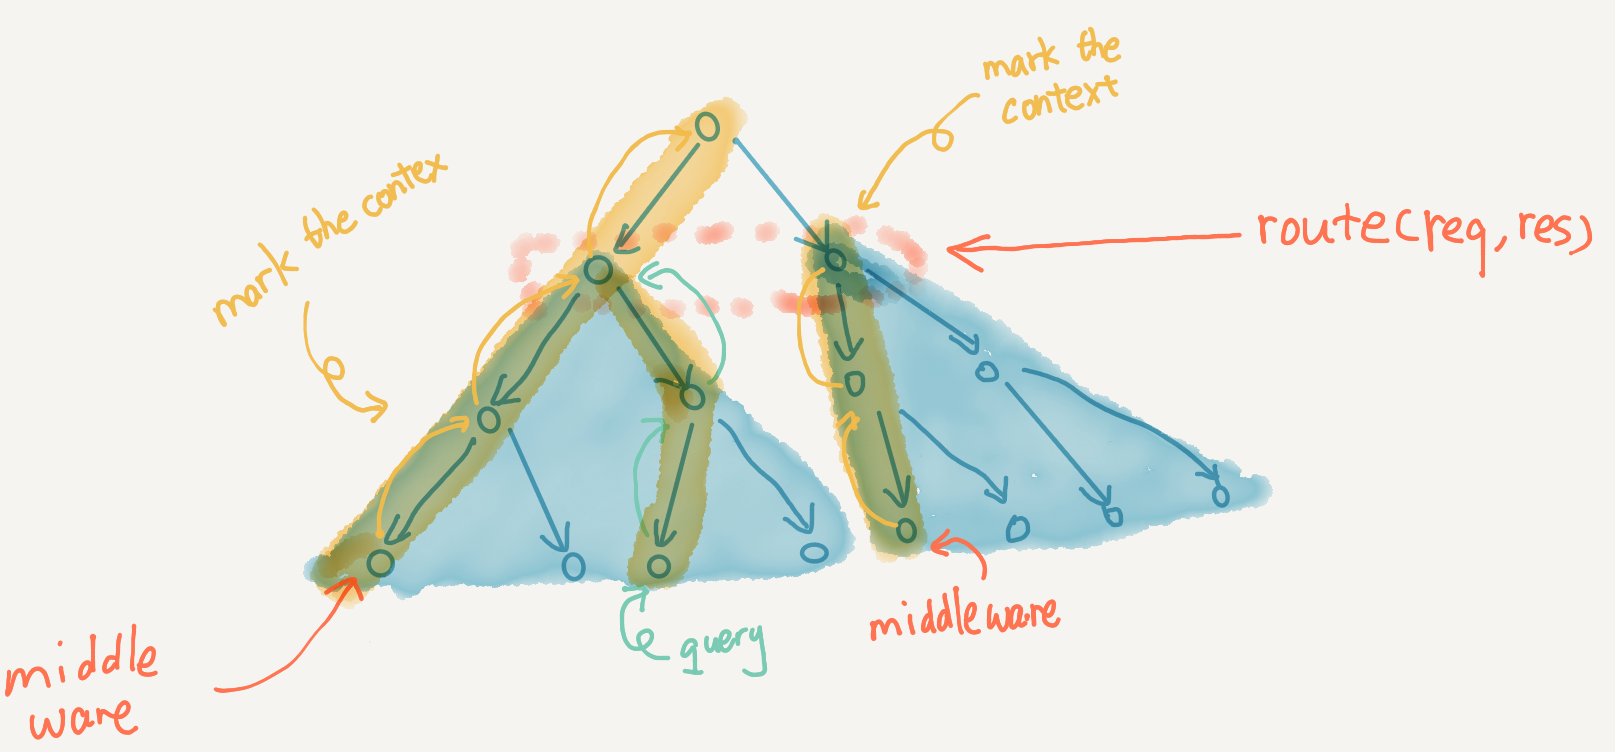 mark the
context
mark the contex
route(req, res)
middleware
query
middle
ware